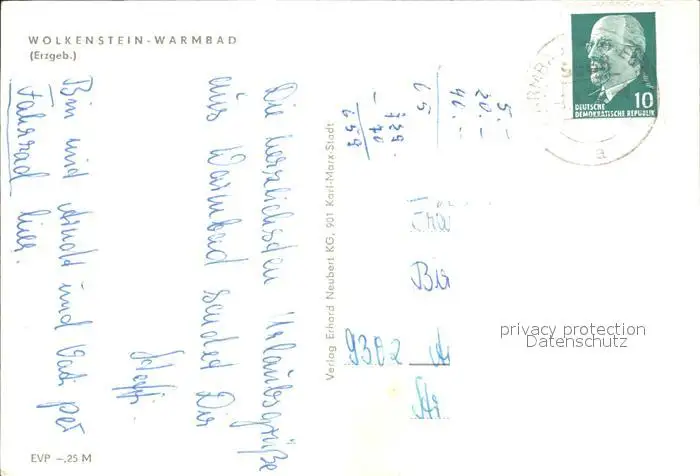 WOLKENSTEIN-WARMBAD
(Erzgeb.)
Die herzlichsten Urlaubsgrüße
aus Warmbad sendet Dir
Steffi.
Bin mit Arnold und Vati per
Fahrrad hier.
EVP -,25 M
Verlag Erhard Neubert KG, 901 Karl-Marx-Stadt
5.-
20.-
40.-
65
729.
70
659
DEUTSCHE
DEMOKRATISCHE REPUBLIK
10
a
Bir
9302 A
privacy protection
Datenschutz